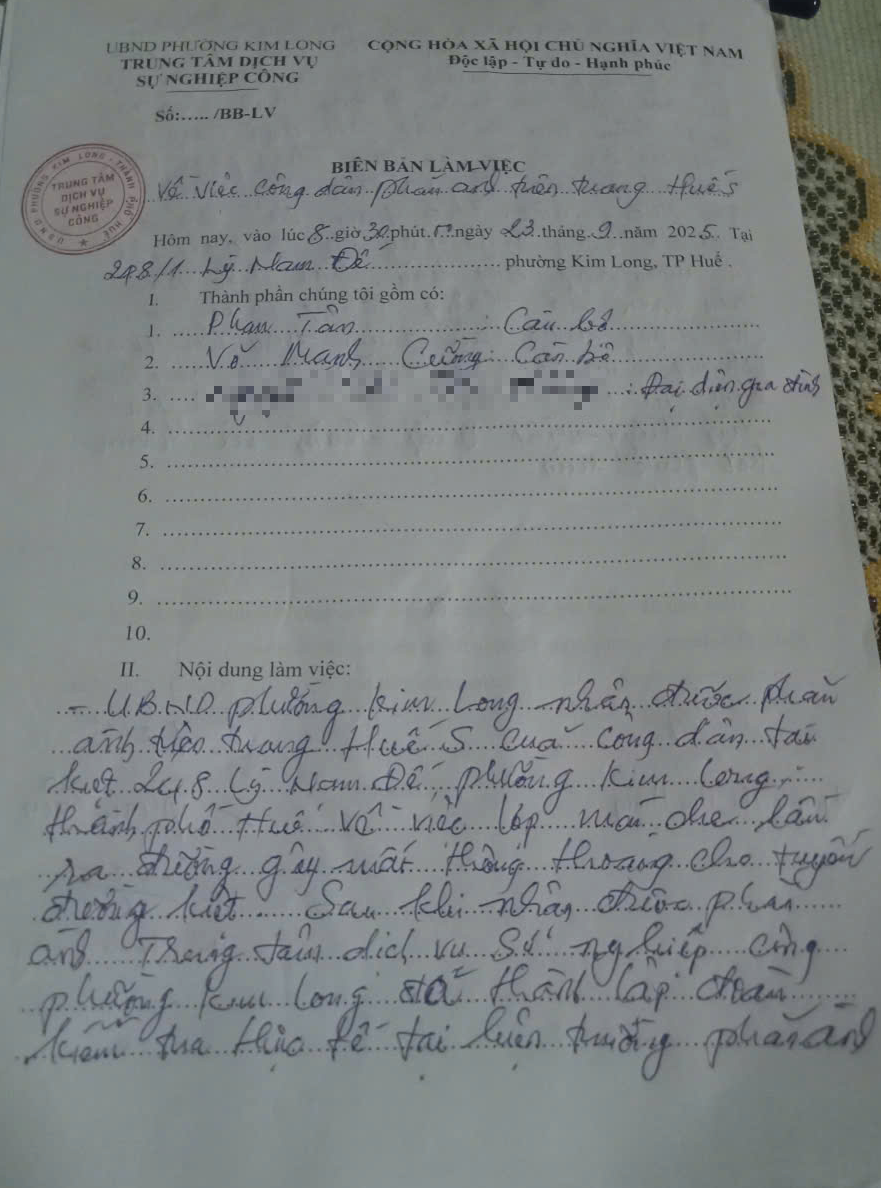 UBND PHƯỜNG KIM LONG
TRUNG TÂM DỊCH VỤ
SỰ NGHIỆP CÔNG
CỘNG HÒA XÃ HỘI CHỦ NGHĨA VIỆT NAM
Độc lập - Tự do - Hạnh phúc
Số:..... /BB-LV
U.B.N.D PHƯỜNG KIM LONG - THÀNH PHỐ HUẾ
TRUNG TÂM
DỊCH VỤ
SỰ NGHIỆP
CÔNG
BIÊN BẢN LÀM VIỆC
Về việc công dân phản ánh trên trang Huế S
Hôm nay, vào lúc 8 giờ 30 phút, ngày 23 tháng 9 năm 2025. Tại
248/1 Lý Nam Đế phường Kim Long, TP Huế.
I. Thành phần chúng tôi gồm có:
1. Phan Tân : Cán bộ
2. Võ Mạnh Cường: Cán bộ
3. : Đại diện gia đình
4.
5.
6.
7.
8.
9.
10.
II. Nội dung làm việc:
- UBND phường Kim Long nhận được phản
ánh trên trang Huế S của công dân tại
kiệt 248 Lý Nam Đế phường Kim Long,
thành phố Huế về việc lợp mái che lấn
ra đường gây mất thông thoáng cho tuyến
đường kiệt. Sau khi nhận được phản
ánh Trung tâm dịch vụ Sự nghiệp công
phường Kim Long đã thành lập đoàn
kiểm tra thực tế tại hiện trường phản ánh